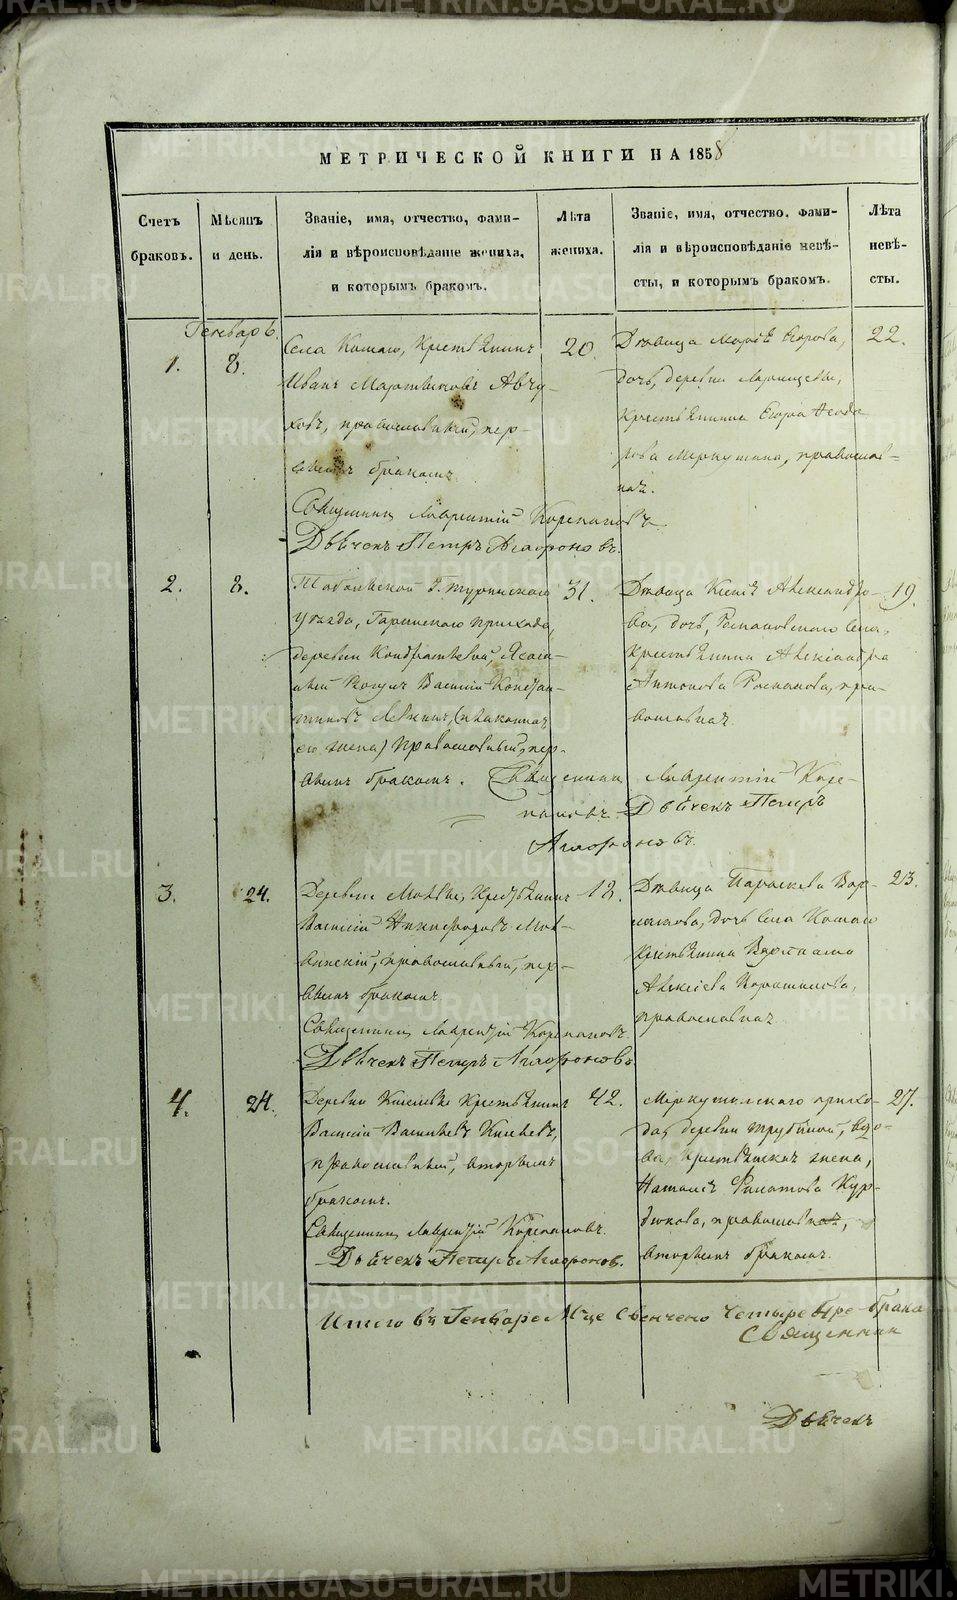 МЕТРИЧЕСКОЙ КНИГИ НА 1858
Счетъ браковъ.
Мѣсяцъ и день.
Званіе, имя, отчество, фами-
лія и вѣроисповѣданіе жениха,
и которымъ бракомъ.
Лѣта жениха.
Званіе, имя, отчество, фами-
лія и вѣроисповѣданіе невѣ-
сты, и которымъ бракомъ.
Лѣта невѣ-
сты.
Генварь.
1.
8.
Села Кошаго, Крестьянинъ
Иванъ Мартиновъ
православный, пер-
вымъ бракомъ
Священникъ Лаврентій Корепановъ
Дьячекъ Петръ Агафоновъ.
20.
Дѣвица Марія Егорова,
дочь, деревни
крестьянина Егора Ѳеодо
рова Меркушина, православ=
ная.
22.
2.
8.
Тобольской Г. Туринскаго
уѣзда, Гаринскаго прихода,
деревни Кондратьевой, Ясаш-
ный Вогулъ Василій Констан-
тиновъ
его жена) православный, пер-
вымъ бракомъ. Священникъ Лаврентій Коре-
пановъ. Дьячекъ Петръ
Агафоновъ.
31.
Дѣвица Ксенія Александро-
ва, дочь, Романовскаго села,
крестьянина Александра
Антонова Романова, пра-
вославная.
19.
3.
24.
Деревни Молвы, Крестьянинъ
Василій Никифоровъ Мол-
винскій, православный, пер-
вымъ бракомъ
Священникъ Лаврентій Корепановъ.
Дьячекъ Петръ Агафоновъ.
Дѣвица Параскева Вар-
лаамова, дочь Села Кошаго
крестьянина Варлаама
Алексіева
православная
23.
4.
24.
Деревни Киселевы Крестьянинъ
Василій Васильевъ Киселевъ,
православный, вторымъ
бракомъ.
Священникъ Лаврентій Корепановъ.
Дьячекъ Петръ Агафоновъ.
42.
Меркушинскаго прихо-
да, деревни Трубиной, вдо-
ва, крестьянская жена,
Наталія Филатова Кур-
дюкова, православная,
вторымъ бракомъ.
27.
Итого въ Генваре М-це свенчено четыре брака
Священник
Дьячекъ
METRIKI.GASO-URAL.RU